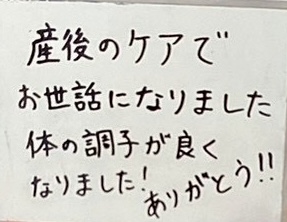 産後のケアで
お世話になりました
体の調子が良く
なりました!
ありがとう!!